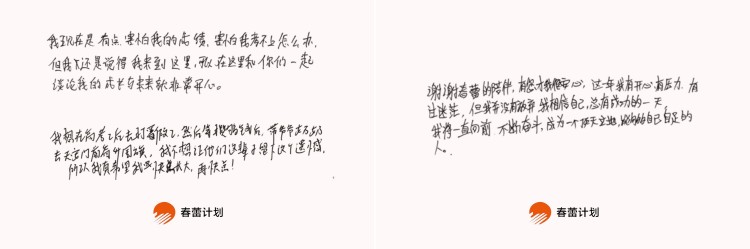 我现在是有点害怕我的高考成绩、害怕我考不上怎么办，
但我还是说但我来到这里，可以在这里和你们一起
谈论我的成长与未来就非常开心。
我想在高考之后去打暑假工，然后等攒够钱后，带爷爷去
去天安门前看升国旗，我不想让他们这辈子留下这个遗憾，
所以我真希望我要快点长大，再快点！
春蕾计划
谢谢春蕾的陪伴，有您才我很安心，这一年我有开心有压力，有
过迷茫，但我并没有放弃我相信自己，总有成功的一天，
我将一直向前，不断奋斗，成为一个自己自足的
人。
春蕾计划